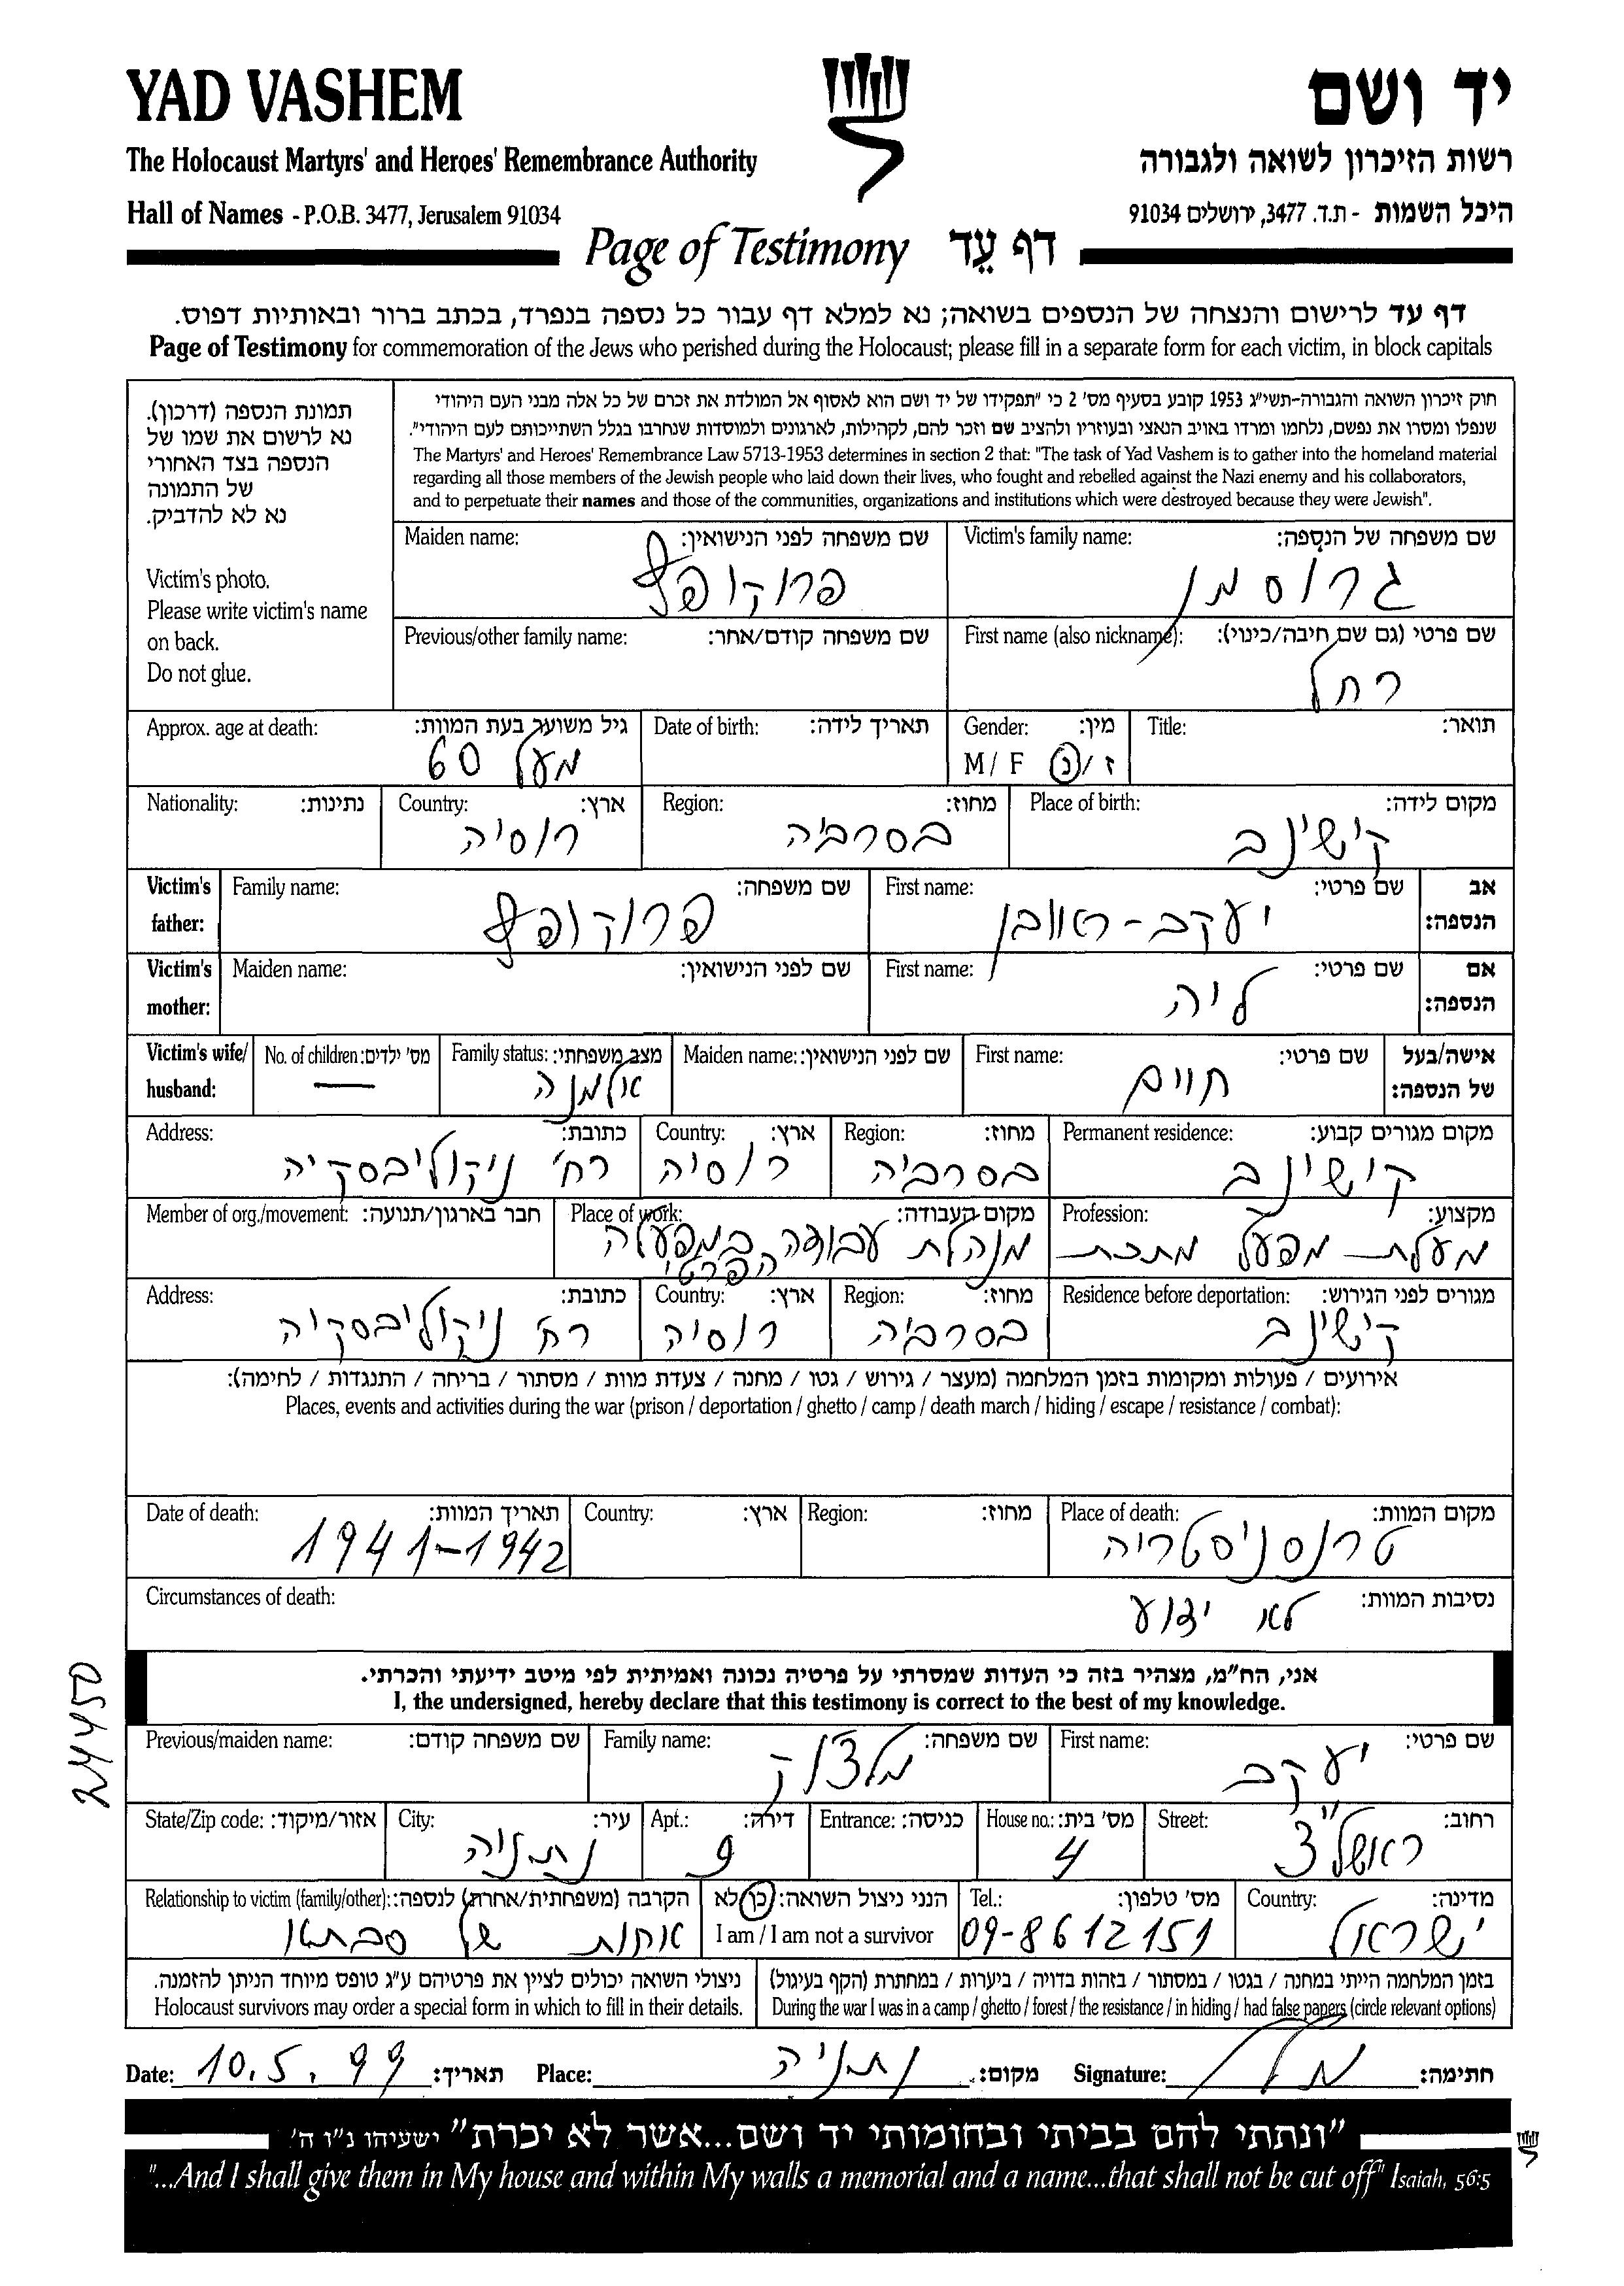 YAD VASHEM
יד ושם
The Holocaust Martyrs' and Heroes' Remembrance Authority
רשות הזיכרון לשואה ולגבורה
Hall of Names - P.O.B. 3477, Jerusalem 91034
היכל השמות - ת.ד. 3477, ירושלים 91034
Page of Testimony דף עֵד
דף עד לרישום והנצחה של הנספים בשואה; נא למלא דף עבור כל נספה בנפרד, בכתב ברור ובאותיות דפוס.
Page of Testimony for commemoration of the Jews who perished during the Holocaust; please fill in a separate form for each victim, in block capitals
תמונת הנספה (דרכון).
נא לרשום את שמו של
הנספה בצד האחורי
של התמונה
נא לא להדביק.
Victim's photo.
Please write victim's name
on back.
Do not glue.
חוק זיכרון השואה והגבורה-תשי"ג 1953 קובע בסעיף מס' 2 כי "תפקידו של יד ושם הוא לאסוף אל המולדת את זכרם של כל אלה מבני העם היהודי
שנפלו ומסרו את נפשם, נלחמו ומרדו באויב הנאצי ובעוזריו ולהציב שם וזכר להם, לקהילות, לארגונים ולמוסדות שנחרבו בגלל השתייכותם לעם היהודי".
The Martyrs' and Heroes' Remembrance Law 5713-1953 determines in section 2 that: "The task of Yad Vashem is to gather into the homeland material
regarding all those members of the Jewish people who laid down their lives, who fought and rebelled against the Nazi enemy and his collaborators,
and to perpetuate their names and those of the communities, organizations and institutions which were destroyed because they were Jewish".
שם משפחה של הנספה: Victim's family name:
גרוסמן
שם משפחה לפני הנישואין: Maiden name:
פרוקופץ
שם פרטי (גם שם חיבה/כינוי): First name (also nickname):
רחל
שם משפחה קודם/אחר: Previous/other family name:
תואר: Title:
מין: Gender:
M / F ז / נ
תאריך לידה: Date of birth:
גיל משוער בעת המוות: Approx. age at death:
מעל 60
מקום לידה: Place of birth:
קישינב
מחוז: Region:
בסרביה
ארץ: Country:
רוסיה
נתינות: Nationality:
אב הנספה: Victim's father:
שם פרטי: First name:
יעקב-ראובן
שם משפחה: Family name:
פרוקופץ
אם הנספה: Victim's mother:
שם פרטי: First name:
ליה
שם לפני הנישואין: Maiden name:
אישה/בעל של הנספה: Victim's wife/husband:
שם פרטי: First name:
חיים
שם לפני הנישואין: Maiden name:
מצב משפחתי: Family status:
אלמנה
מס' ילדים: No. of children:
—
מקום מגורים קבוע: Permanent residence:
קישינב
מחוז: Region:
בסרביה
ארץ: Country:
רוסיה
כתובת: Address:
רח' ניקוליבסקיה
מקצוע: Profession:
בעלת מפעל מתכת
מקום העבודה: Place of work:
מנהלת עבודה במפעלה
הפרטי
חבר בארגון/תנועה: Member of org./movement:
מגורים לפני הגירוש: Residence before deportation:
קישינב
מחוז: Region:
בסרביה
ארץ: Country:
רוסיה
כתובת: Address:
רח' ניקוליבסקיה
אירועים / פעולות ומקומות בזמן המלחמה (מעצר / גירוש / גטו / מחנה / צעדת מוות / מסתור / בריחה / התנגדות / לחימה):
Places, events and activities during the war (prison / deportation / ghetto / camp / death march / hiding / escape / resistance / combat):
מקום המוות: Place of death:
טרנסניסטריה
מחוז: Region:
ארץ: Country:
תאריך המוות: Date of death:
1941-1942
נסיבות המוות: Circumstances of death:
לא ידוע
אני, הח"מ, מצהיר בזה כי העדות שמסרתי על פרטיה נכונה ואמיתית לפי מיטב ידיעתי והכרתי.
I, the undersigned, hereby declare that this testimony is correct to the best of my knowledge.
24450
שם פרטי: First name:
יעקב
שם משפחה: Family name:
שם משפחה קודם: Previous/maiden name:
רחוב: Street:
ראשל"צ
מס' בית: House no.:
4
כניסה: Entrance:
דירה: Apt.:
9
עיר: City:
נתניה
אזור/מיקוד: State/Zip code:
מדינה: Country:
ישראל
מס' טלפון: Tel.:
09-8612151
הנני ניצול השואה: כן לא
I am / I am not a survivor
הקרבה (משפחתית/אחרת) לנספה: Relationship to victim (family/other):
אחות של סבתא
בזמן המלחמה הייתי במחנה / בגטו / במסתור / בזהות בדויה / ביערות / במחתרת (הקף בעיגול)
During the war I was in a camp / ghetto / forest / the resistance / in hiding / had false papers (circle relevant options)
ניצולי השואה יכולים לציין את פרטיהם ע"ג טופס מיוחד הניתן להזמנה.
Holocaust survivors may order a special form in which to fill in their details.
Date: 10.5.99 תאריך: Place: נתניה מקום: Signature: חתימה:
"ונתתי להם בביתי ובחומותי יד ושם...אשר לא יכרת" ישעיהו נ"ו ה'
"...And I shall give them in My house and within My walls a memorial and a name...that shall not be cut off" Isaiah, 56:5